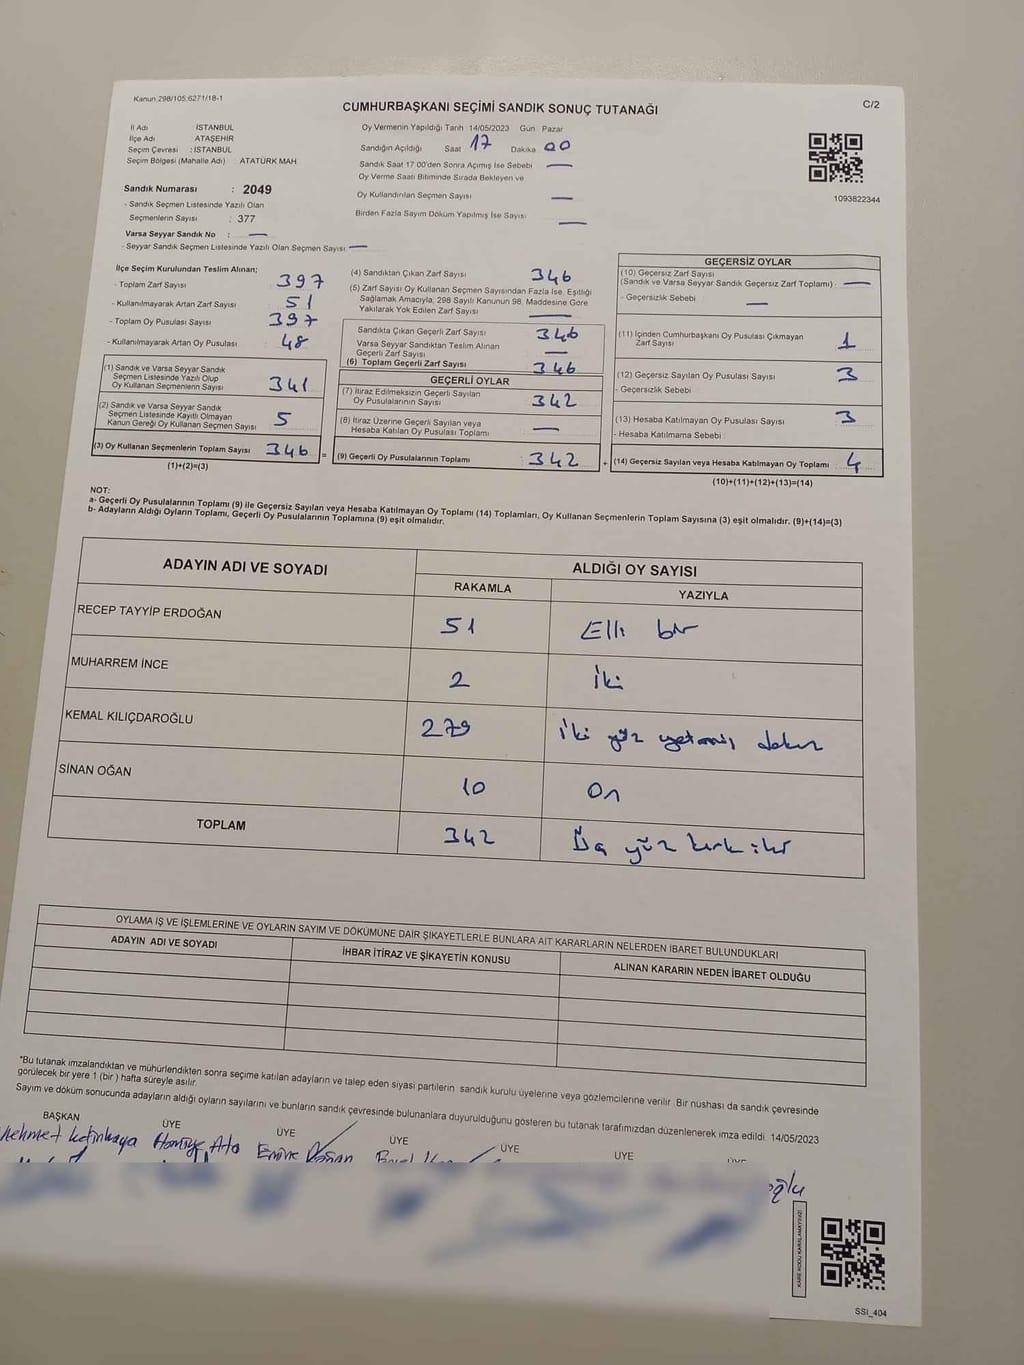 Kanun 298/105,6271/18-1
CUMHURBAŞKANI SEÇİMİ SANDIK SONUÇ TUTANAĞI
C/2
İl Adı İSTANBUL
İlçe Adı : ATAŞEHİR
Seçim Çevresi : İSTANBUL
Seçim Bölgesi (Mahalle Adı) : ATATÜRK MAH
Sandık Numarası : 2049
- Sandık Seçmen Listesinde Yazılı Olan
Seçmenlerin Sayısı : 377
Varsa Seyyar Sandık No : —
- Seyyar Sandık Seçmen Listesinde Yazılı Olan Seçmen Sayısı: —
Oy Vermenin Yapıldığı Tarih 14/05/2023 Gün : Pazar
Sandığın Açıldığı Saat 17 Dakika 00
Sandık Saat 17 00'den Sonra Açımış İse Sebebi —
Oy Verme Saati Bitiminde Sırada Bekleyen ve
Oy Kullandırılan Seçmen Sayısı —
Birden Fazla Sayım Döküm Yapılmış İse Sayısı —
1093822344
İlçe Seçim Kurulundan Teslim Alınan;
- Toplam Zarf Sayısı 397
- Kullanılmayarak Artan Zarf Sayısı 51
- Toplam Oy Pusulası Sayısı 397
- Kullanılmayarak Artan Oy Pusulası 48
(1) Sandık ve Varsa Seyyar Sandık
Seçmen Listesinde Yazılı Olup
Oy Kullanan Seçmenlerin Sayısı 341
(2) Sandık ve Varsa Seyyar Sandık
Seçmen Listesinde Kayıtlı Olmayan
Kanun Gereği Oy Kullanan Seçmen Sayısı 5
(3) Oy Kullanan Seçmenlerin Toplam Sayısı 346 =
(1)+(2)=(3)
(4) Sandıktan Çıkan Zarf Sayısı 346
(5) Zarf Sayısı Oy Kullanan Seçmen Sayısından Fazla İse, Eşitliği
Sağlamak Amacıyla; 298 Sayılı Kanunun 98. Maddesine Göre
Yakılarak Yok Edilen Zarf Sayısı —
Sandıkta Çıkan Geçerli Zarf Sayısı 346
Varsa Seyyar Sandıktan Teslim Alınan
Geçerli Zarf Sayısı —
(6) Toplam Geçerli Zarf Sayısı 346
GEÇERLİ OYLAR
(7) İtiraz Edilmeksizin Geçerli Sayılan
Oy Pusulalarının Sayısı 342
(8) İtiraz Üzerine Geçerli Sayılan veya
Hesaba Katılan Oy Pusulası Toplamı —
(9) Geçerli Oy Pusulalarının Toplamı 342 +
GEÇERSİZ OYLAR
(10) Geçersiz Zarf Sayısı
(Sandık ve Varsa Seyyar Sandık Geçersiz Zarf Toplamı) : —
- Geçersizlik Sebebi —
(11) İçinden Cumhurbaşkanı Oy Pusulası Çıkmayan
Zarf Sayısı 1
(12) Geçersiz Sayılan Oy Pusulası Sayısı 3
- Geçersizlik Sebebi
(13) Hesaba Katılmayan Oy Pusulası Sayısı 3
- Hesaba Katılmama Sebebi :
(14) Geçersiz Sayılan veya Hesaba Katılmayan Oy Toplamı 4
(10)+(11)+(12)+(13)=(14)
NOT:
a- Geçerli Oy Pusulalarının Toplamı (9) ile Geçersiz Sayılan veya Hesaba Katılmayan Oy Toplamı (14) Toplamları, Oy Kullanan Seçmenlerin Toplam Sayısına (3) eşit olmalıdır. (9)+(14)=(3)
b- Adayların Aldığı Oyların Toplamı, Geçerli Oy Pusulalarının Toplamına (9) eşit olmalıdır.
ADAYIN ADI VE SOYADI ALDIĞI OY SAYISI
RAKAMLA YAZIYLA
RECEP TAYYİP ERDOĞAN 51 Elli bir
MUHARREM İNCE 2 İki
KEMAL KILIÇDAROĞLU 279 İki yüz yetmiş dokuz
SİNAN OĞAN 10 On
TOPLAM 342 Üç yüz kırk iki
OYLAMA İŞ VE İŞLEMLERİNE VE OYLARIN SAYIM VE DÖKÜMÜNE DAİR ŞİKAYETLERLE BUNLARA AİT KARARLARIN NELERDEN İBARET BULUNDUKLARI
ADAYIN ADI VE SOYADI İHBAR İTİRAZ VE ŞİKAYETİN KONUSU ALINAN KARARIN NEDEN İBARET OLDUĞU
*Bu tutanak imzalandıktan ve mühürlendikten sonra seçime katılan adayların ve talep eden siyasi partilerin sandık kurulu üyelerine veya gözlemcilerine verilir. Bir nüshası da sandık çevresinde
görülecek bir yere 1 (bir ) hafta süreyle asılır.
Sayım ve döküm sonucunda adayların aldığı oyların sayılarını ve bunların sandık çevresinde bulunanlara duyurulduğunu gösteren bu tutanak tarafımızdan düzenlenerek imza edildi. 14/05/2023
BAŞKAN ÜYE ÜYE ÜYE ÜYE ÜYE
Ata Emine
oğlu
KARE KODU KARALAMAYINIZ!
SSI_404